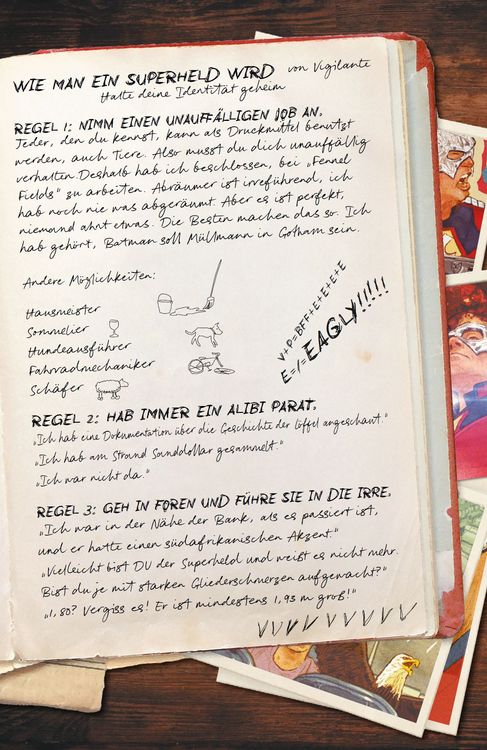 WIE MAN EIN SUPERHELD WIRD von Vigilante
Halte deine Identität geheim
REGEL 1: NIMM EINEN UNAUFFÄLLIGEN JOB AN.
Jeder, den du kennst, kann als Druckmittel benutzt
werden, auch Tiere. Also musst du dich unauffällig
verhalten. Deshalb hab ich beschlossen, bei „Fennel
Fields“ zu arbeiten. Abräumer ist irreführend, ich
hab noch nie was abgeräumt. Aber es ist perfekt,
niemand ahnt etwas. Die Besten machen das so. Ich
hab gehört, Batman soll Müllmann in Gotham sein.
Andere Möglichkeiten:
Hausmeister
Sommelier
Hundeausführer
Fahrradmechaniker
Schäfer
V+P=BFF+E+E+E+E
E=/=EAGLY!!!!!
REGEL 2: HAB IMMER EIN ALIBI PARAT.
„Ich hab eine Dokumentation über die Geschichte der Löffel angeschaut.“
„Ich hab am Strand Sanddollar gesammelt.“
„Ich war nicht da.“
REGEL 3: GEH IN FOREN UND FÜHRE SIE IN DIE IRRE.
„Ich war in der Nähe der Bank, als es passiert ist,
und er hatte einen südafrikanischen Akzent.“
„Vielleicht bist DU der Superheld und weißt es nicht mehr.
Bist du je mit starken Gliederschmerzen aufgewacht?“
„1,80? Vergiss es! Er ist mindestens 1,93 m groß!“